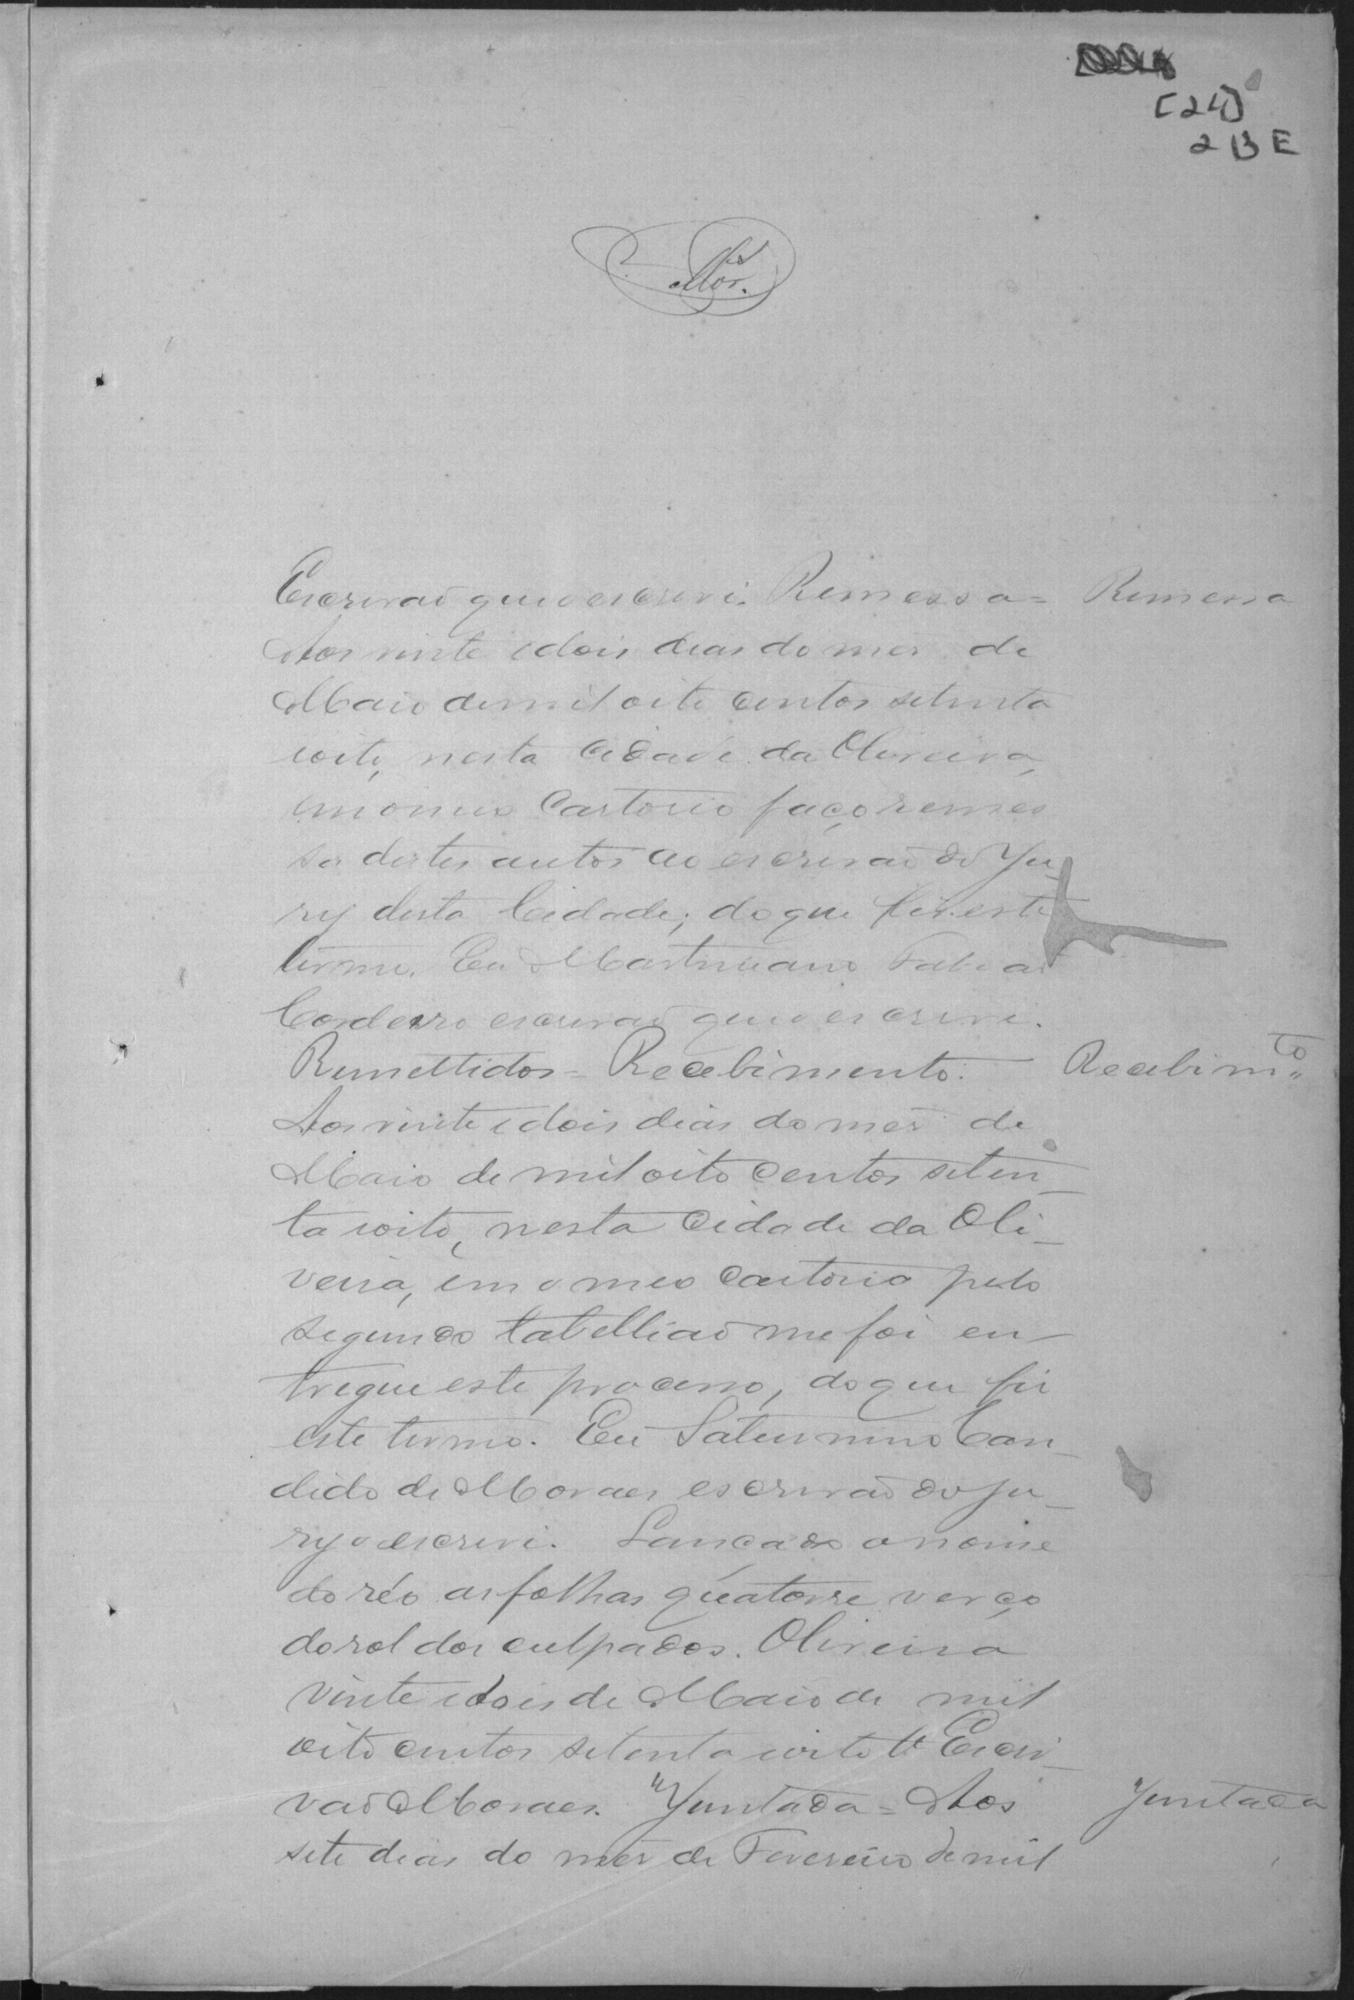 [24]
2 B E
Mor.es
Escrivaõ que o escrevi. Remessa = Remessa
Aos vinte e dois dias do mes de
Maio de mil oito centos setenta
e oito, nesta Cidade da Oliveira,
em o meo Cartorio faço remes
sa destes autos ao escrivaõ do Ju
ry desta Cidade; do que fis este
termo. Eu Martiniano
Cordeiro escrivaõ que o escrevi.
Remettidos = Recebimento. — Recebim.to
Aos vinte e dois dias do mes de
Maio de mil oito centos seten_
ta e oito, nesta Cidade da Oli_
veira, em o meo Cartorio pelo
segundo tabelliaõ me foi en_
tregue este processo, do que fis
este termo. Eu Saturnino Can_
dido de Moraes escrivaõ do Ju_
ry o escrevi. Lançado o nome
do réo as folhas quatorse verço
do rol dos culpados. Oliveira
vinte e dois de Maio de mil
oito centos setenta e oito Escri_
vaõ Moraes. "Juntada = Aos "Juntada
sete dias do mes de Fevereiro de mil